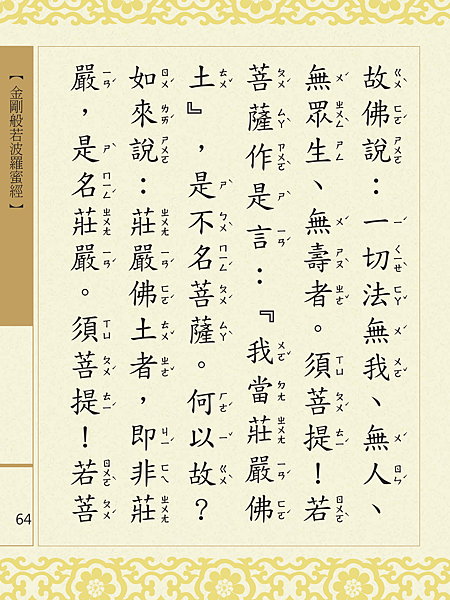 故佛說：一切法無我、無人、
無眾生、無壽者。須菩提！若
菩薩作是言：『我當莊嚴佛
土』，是不名菩薩。何以故？
如來說：莊嚴佛土者，即非莊
嚴，是名莊嚴。須菩提！若菩
【金剛般若波羅蜜經】
64